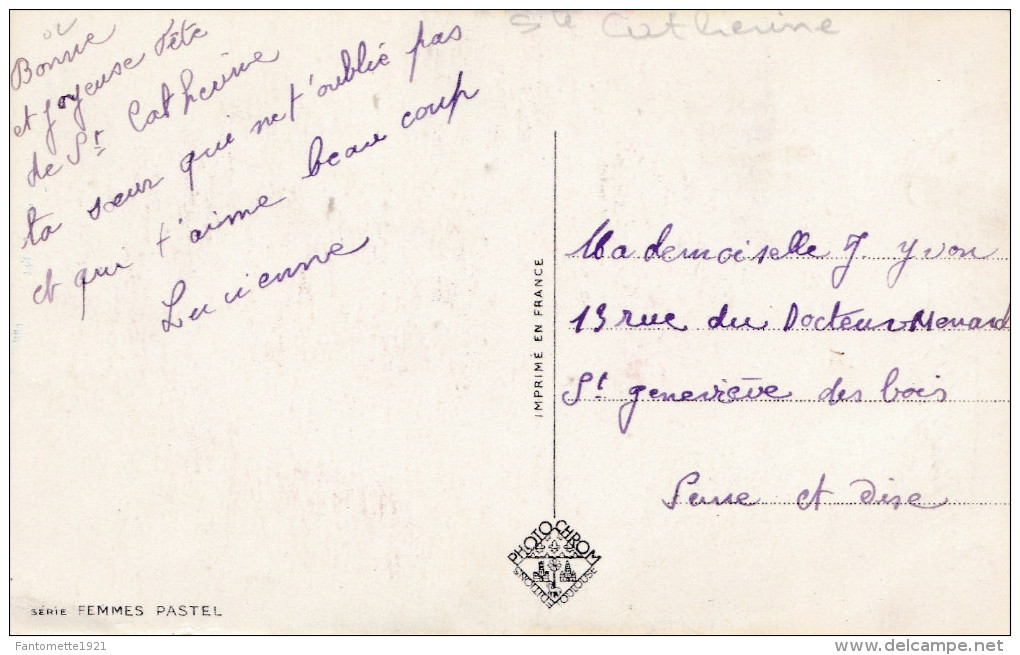 Ste Catherine
Bonne
et joyeuse Fête
de St Catherine
ta sœur qui ne t'oublie pas
et qui t'aime beau coup
Lucienne
Mademoiselle J. Yvon
13 rue du Docteur Menard
St geneviève des bois
Seine et Oise
IMPRIMÉ EN FRANCE
PHOTOCHROM
EDITIONS TOULOUSE
SÉRIE FEMMES PASTEL
Fantomette1921
www.delcampe.net